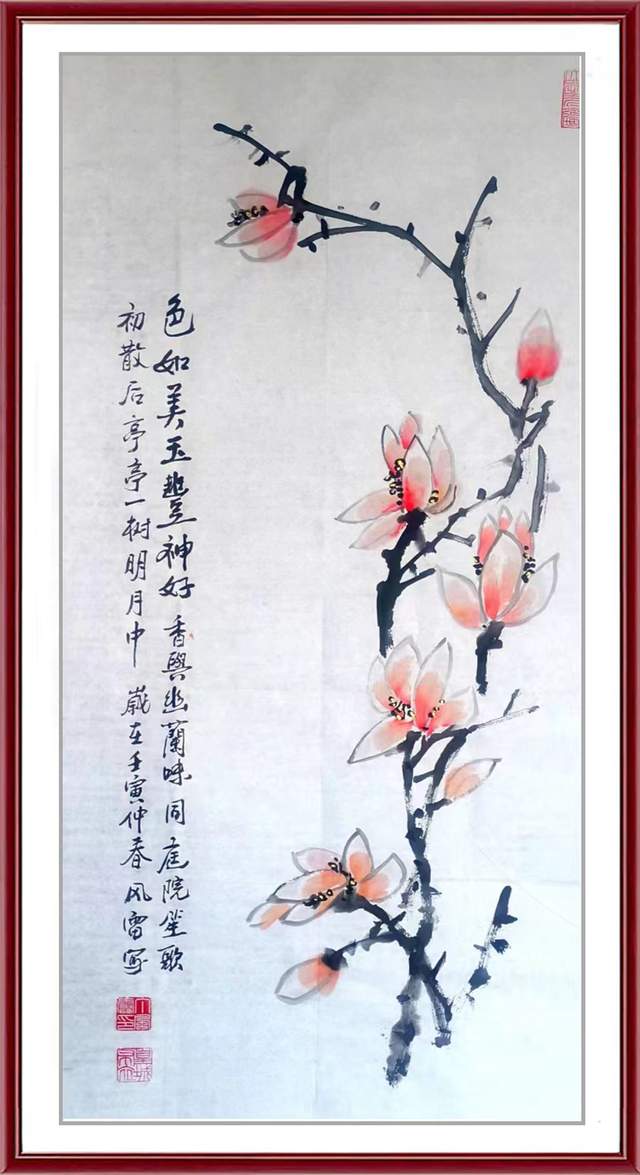 色如美玉豐神好香與幽蘭味同庭院笙歌
初散后亭亭一树明月中嵗在壬寅仲春风雷写